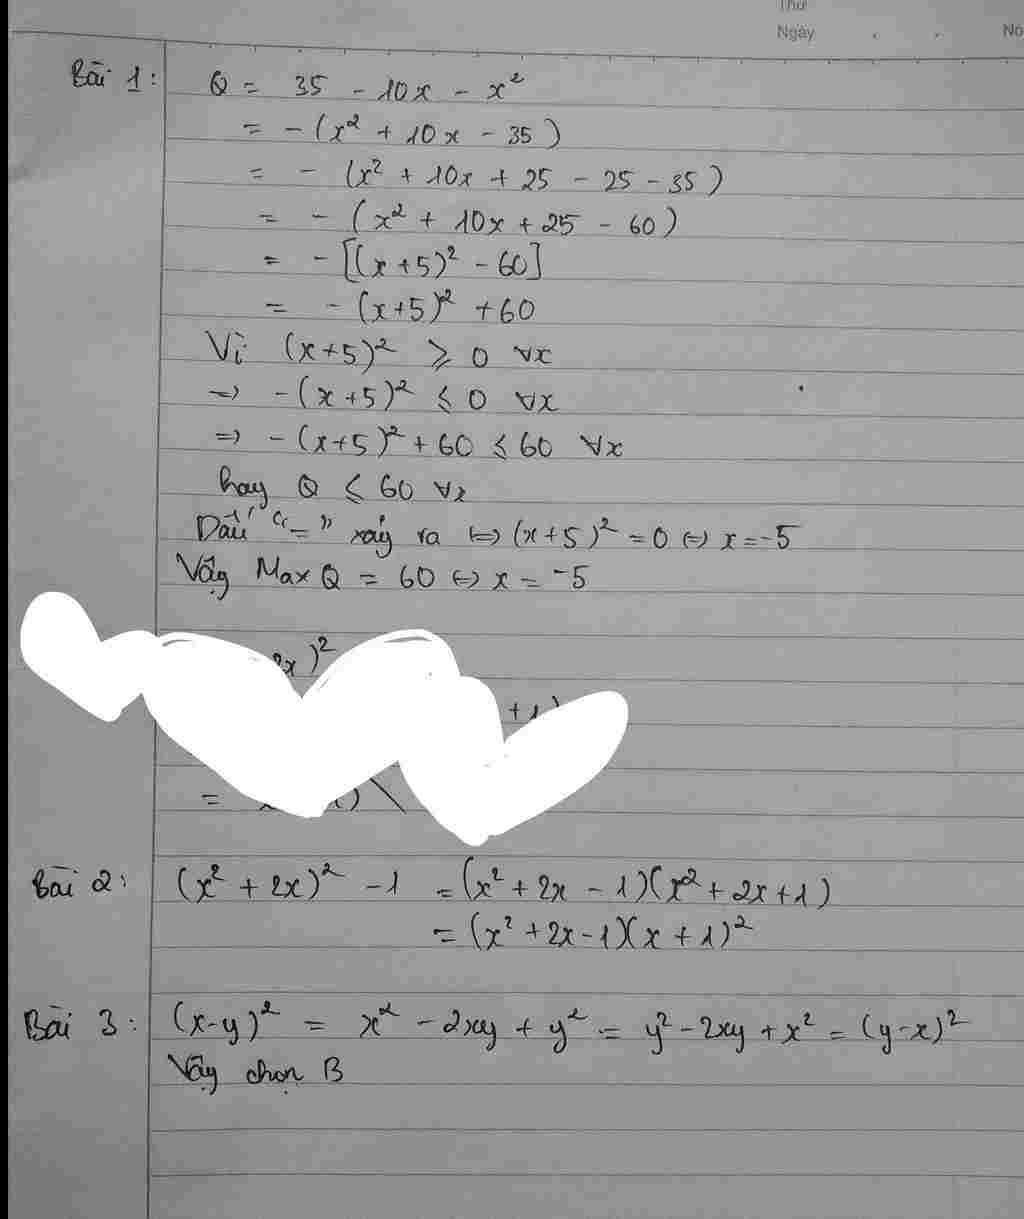 Thứ
Ngày . . No
Bài 1: Q = 35 - 10x - x²
= - (x² + 10x - 35)
= - (x² + 10x + 25 - 25 - 35)
= - (x² + 10x + 25 - 60)
= - [(x+5)² - 60]
= - (x+5)² + 60
Vì (x+5)² ⩾ 0 ∀x
=> - (x+5)² ⩽ 0 ∀x
=> - (x+5)² + 60 ⩽ 60 ∀x
hay Q ⩽ 60 ∀x
Dấu "=" xảy ra <=> (x+5)² = 0 <=> x = -5
Vậy Max Q = 60 <=> x = -5
2x)²
+ 1)
=
Bài 2: (x² + 2x)² - 1 = (x² + 2x - 1)(x² + 2x + 1)
= (x² + 2x - 1)(x + 1)²
Bài 3: (x-y)² = x² - 2xy + y² = y² - 2xy + x² = (y-x)²
Vậy chọn B